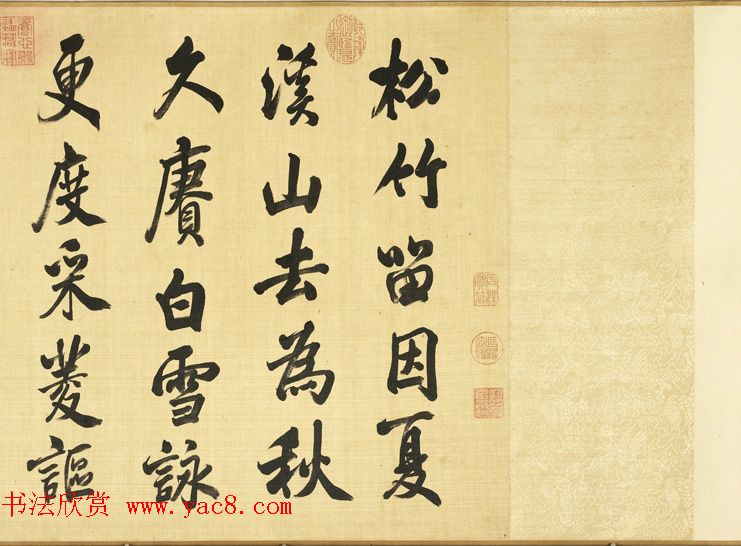 松竹留因夏
溪山去為秋
久賡白雪詠
更度采菱謳
书法欣赏 www.yac8.com